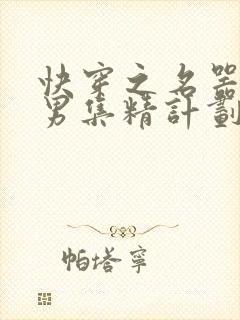 快穿之名器
男集精計劃
帕塔寧